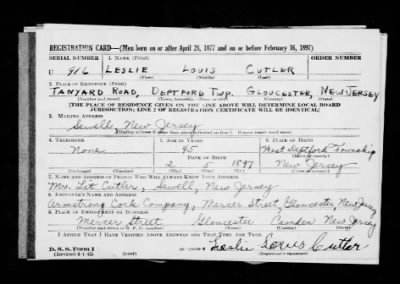 REGISTRATION CARD—(Men born on or after April 28, 1877 and on or before February 16, 1897)
SERIAL NUMBER 1. NAME (Print) ORDER NUMBER
U 916 LESLIE LOUIS CUTLER
(First) (Middle) (Last)
2. PLACE OF RESIDENCE (Print)
TANYARD ROAD, DEPTFORD TWP. GLOUCESTER, NEW JERSEY
(Number and street) (Town, township, village, or city) (County) (State)
[THE PLACE OF RESIDENCE GIVEN ON THE LINE ABOVE WILL DETERMINE LOCAL BOARD
JURISDICTION; LINE 2 OF REGISTRATION CERTIFICATE WILL BE IDENTICAL]
3. MAILING ADDRESS
Sewell, New Jersey
4. TELEPHONE 5. AGE IN YEARS 6. PLACE OF BIRTH
None 45 West Deptford Township
DATE OF BIRTH
2 5 1897 New Jersey
7. NAME AND ADDRESS OF PERSON WHO WILL ALWAYS KNOW YOUR ADDRESS
Mrs. Cutler, Sewell, New Jersey
8. EMPLOYER'S NAME AND ADDRESS
Armstrong Cork Company, Mercer Street, Gloucester, New Jersey
9. PLACE OF EMPLOYMENT OR BUSINESS
Mercer Street Gloucester Camden New Jersey
(Number and street or R. F. D. number) (Town) (County) (State)
I AFFIRM THAT I HAVE VERIFIED ABOVE ANSWERS AND THAT THEY ARE TRUE.
D. S. S. Form 1
(Revised 4-1-42)
Leslie Louis Cutler
(Registrant's signature)